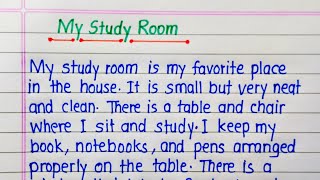 My Study Room
My study room is my favorite place
in the house. It is small but very neat
and clean. There is a table and chair
where I sit and study. I keep my
book, notebooks, and pens arranged
properly on the table. There is a